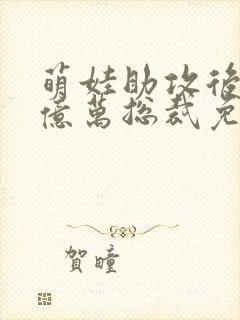 萌娃助攻後
億萬總裁免
賀瞳